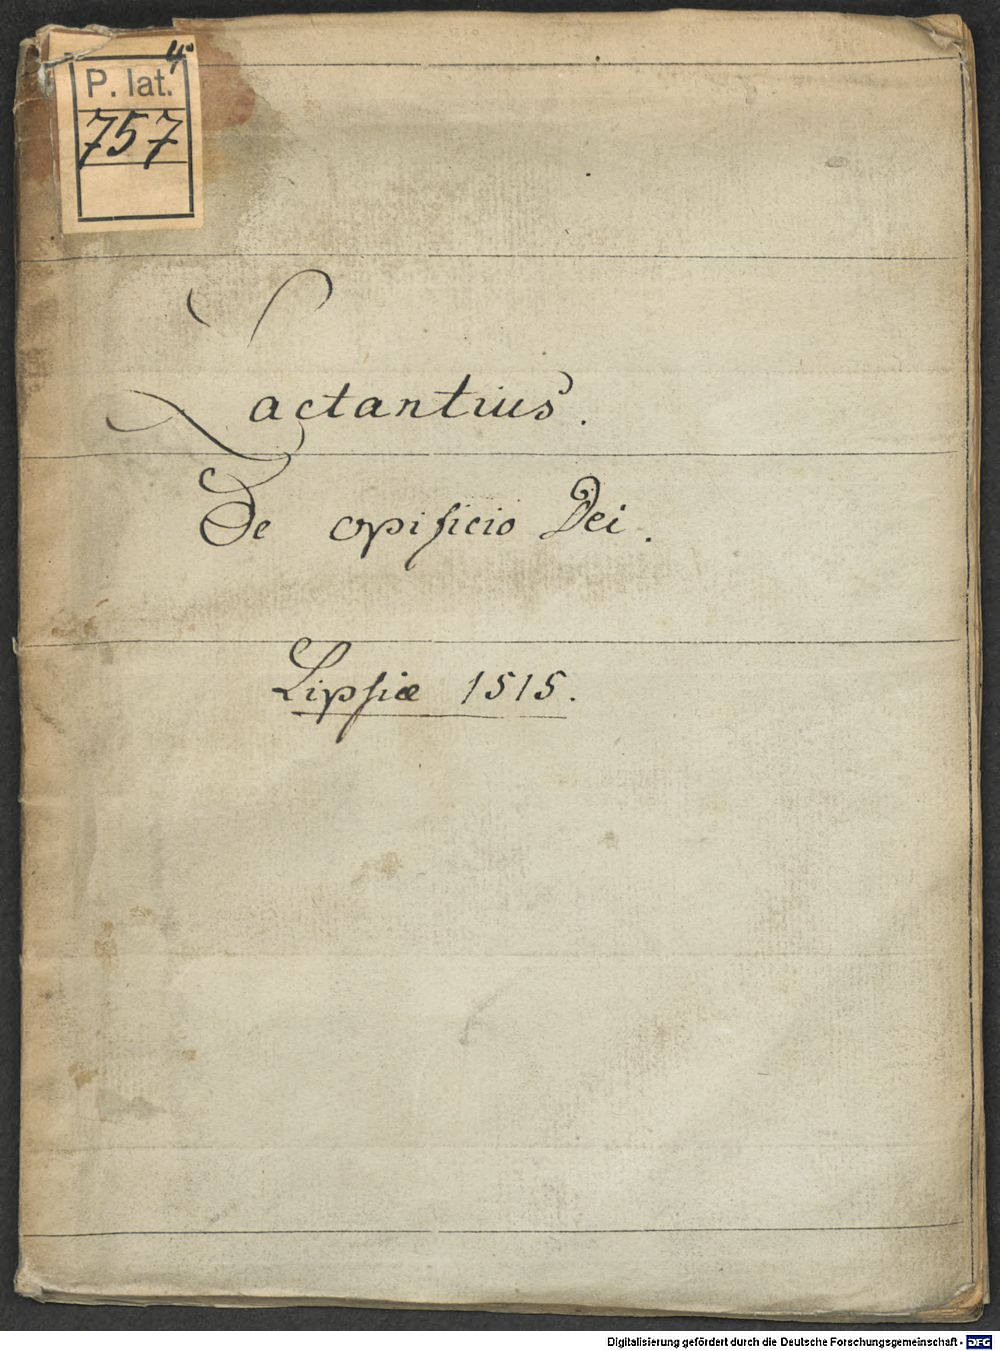 4°
P. lat.
757
Lactantius.
De opificio Dei.
Lipsiæ 1515.
Digitalisierung gefördert durch die Deutsche Forschungsgemeinschaft - DFG